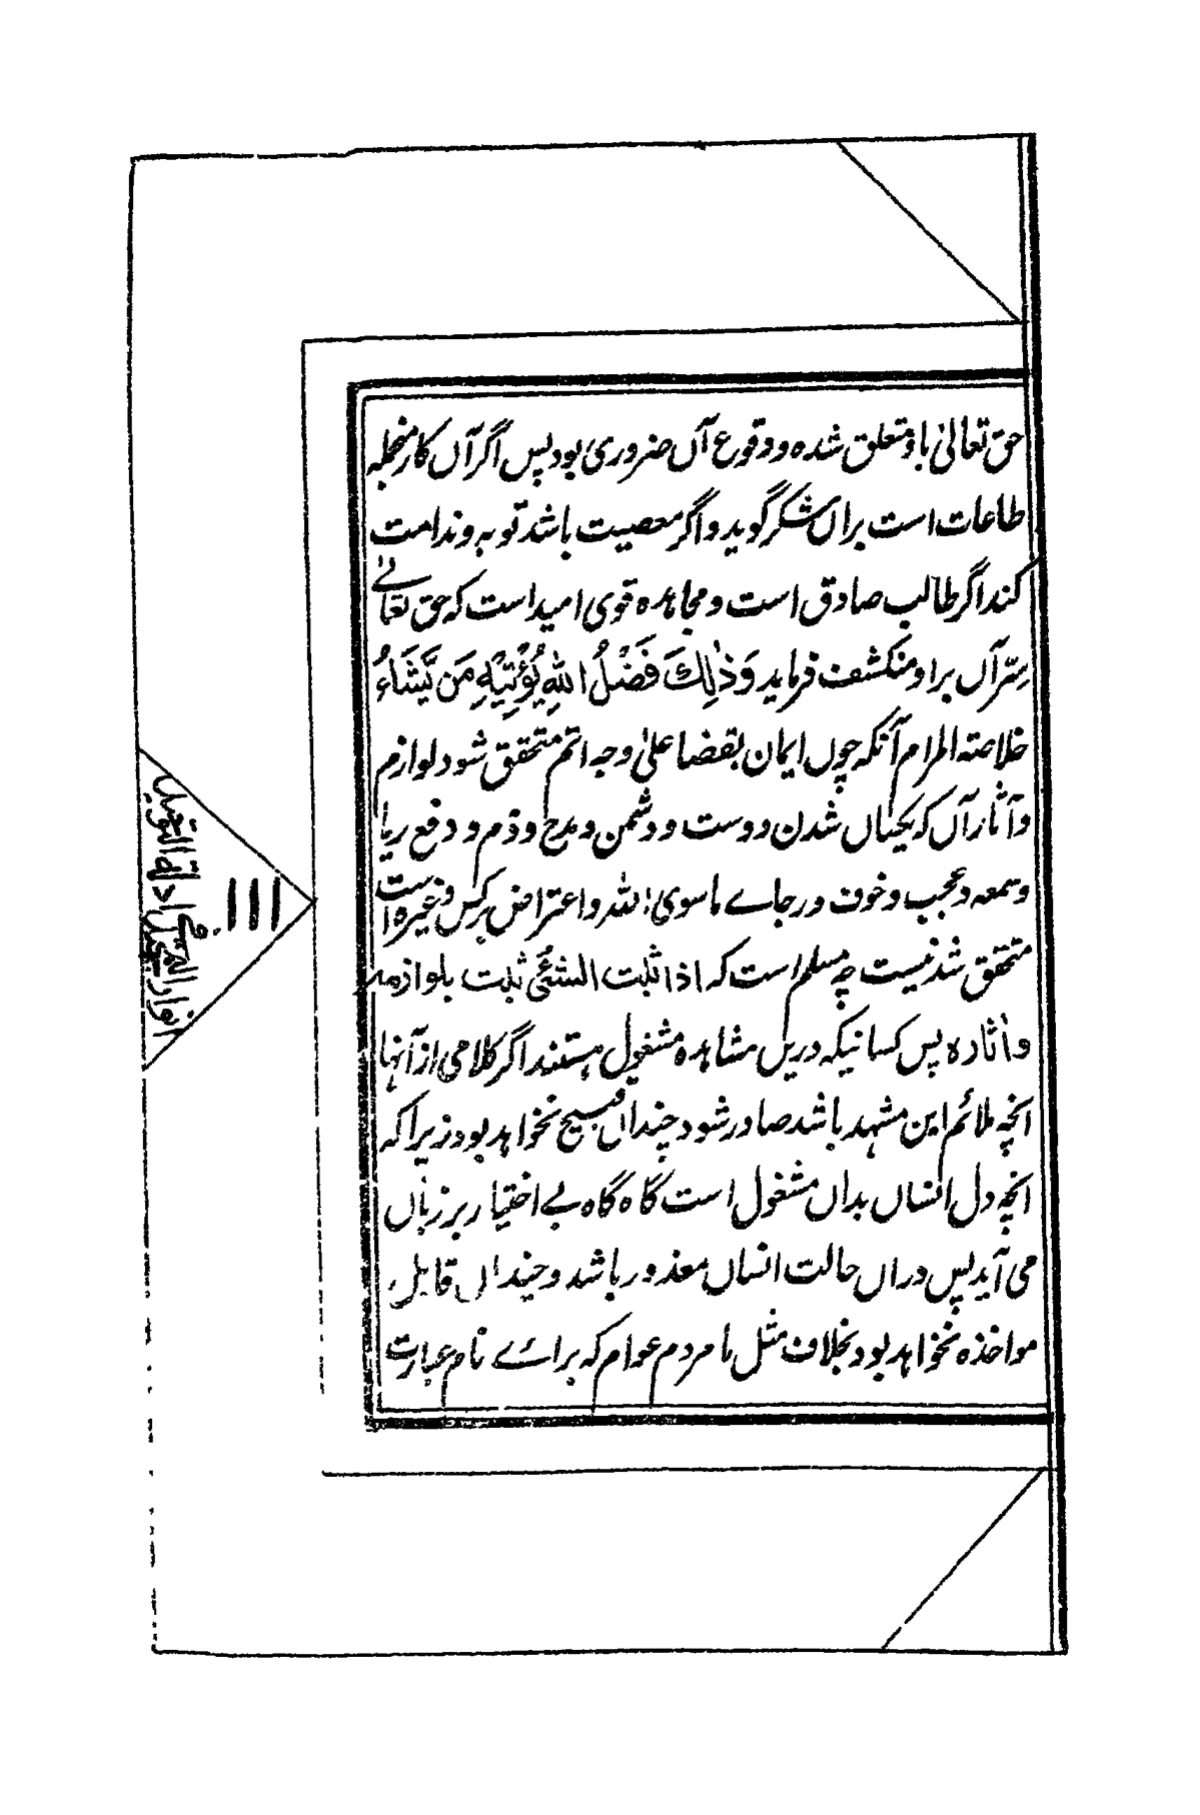 حق تعالیٰ باو متعلق شده و وقوع آں ضروری بود پس اگر آں کار منجمله
طاعات است براں شکر گوید و اگر معصیت باشد توبه و ندامت
کند اگر طالب صادق است و مجاهده قوی امید است که حق تعالے
سِرّ آں براو منکشف فرماید وَذٰلِكَ فَضْلُ اللهِ يُؤْتِيْهِ مَن يَّشَاءُ
خلاصته المرام آنکه چوں ایمان بقضا علیٰ وجه اتم متحقق شود لوازم
و آثار آں که یکیاں شدن دوست و دشمن و مدح و ذم و دفع ریا
و سمعه و عجب و خوف و رجاے ماسوی الله و اعتراض برکس وغیره است
متحقق شدنیست چه مسلم است که اذا ثبت الشئی ثبت بلوازمه
و اٰثاره پس کسانیکه دریں مشاهده مشغول هستند اگر کلامی از آنها
انچه ملائم این مشهد باشد صادر شود چنداں قبیح نخواهد بود زیرا که
انچه دل انساں بداں مشغول است گاه گاه بے اختیار بر زباں
می آید پس دراں حالت انساں معذور باشد و چنداں قابل
مواخذه نخواهد بود بخلاف مثل ما مردم عوام که برائے نام عبارت
۱۱۱